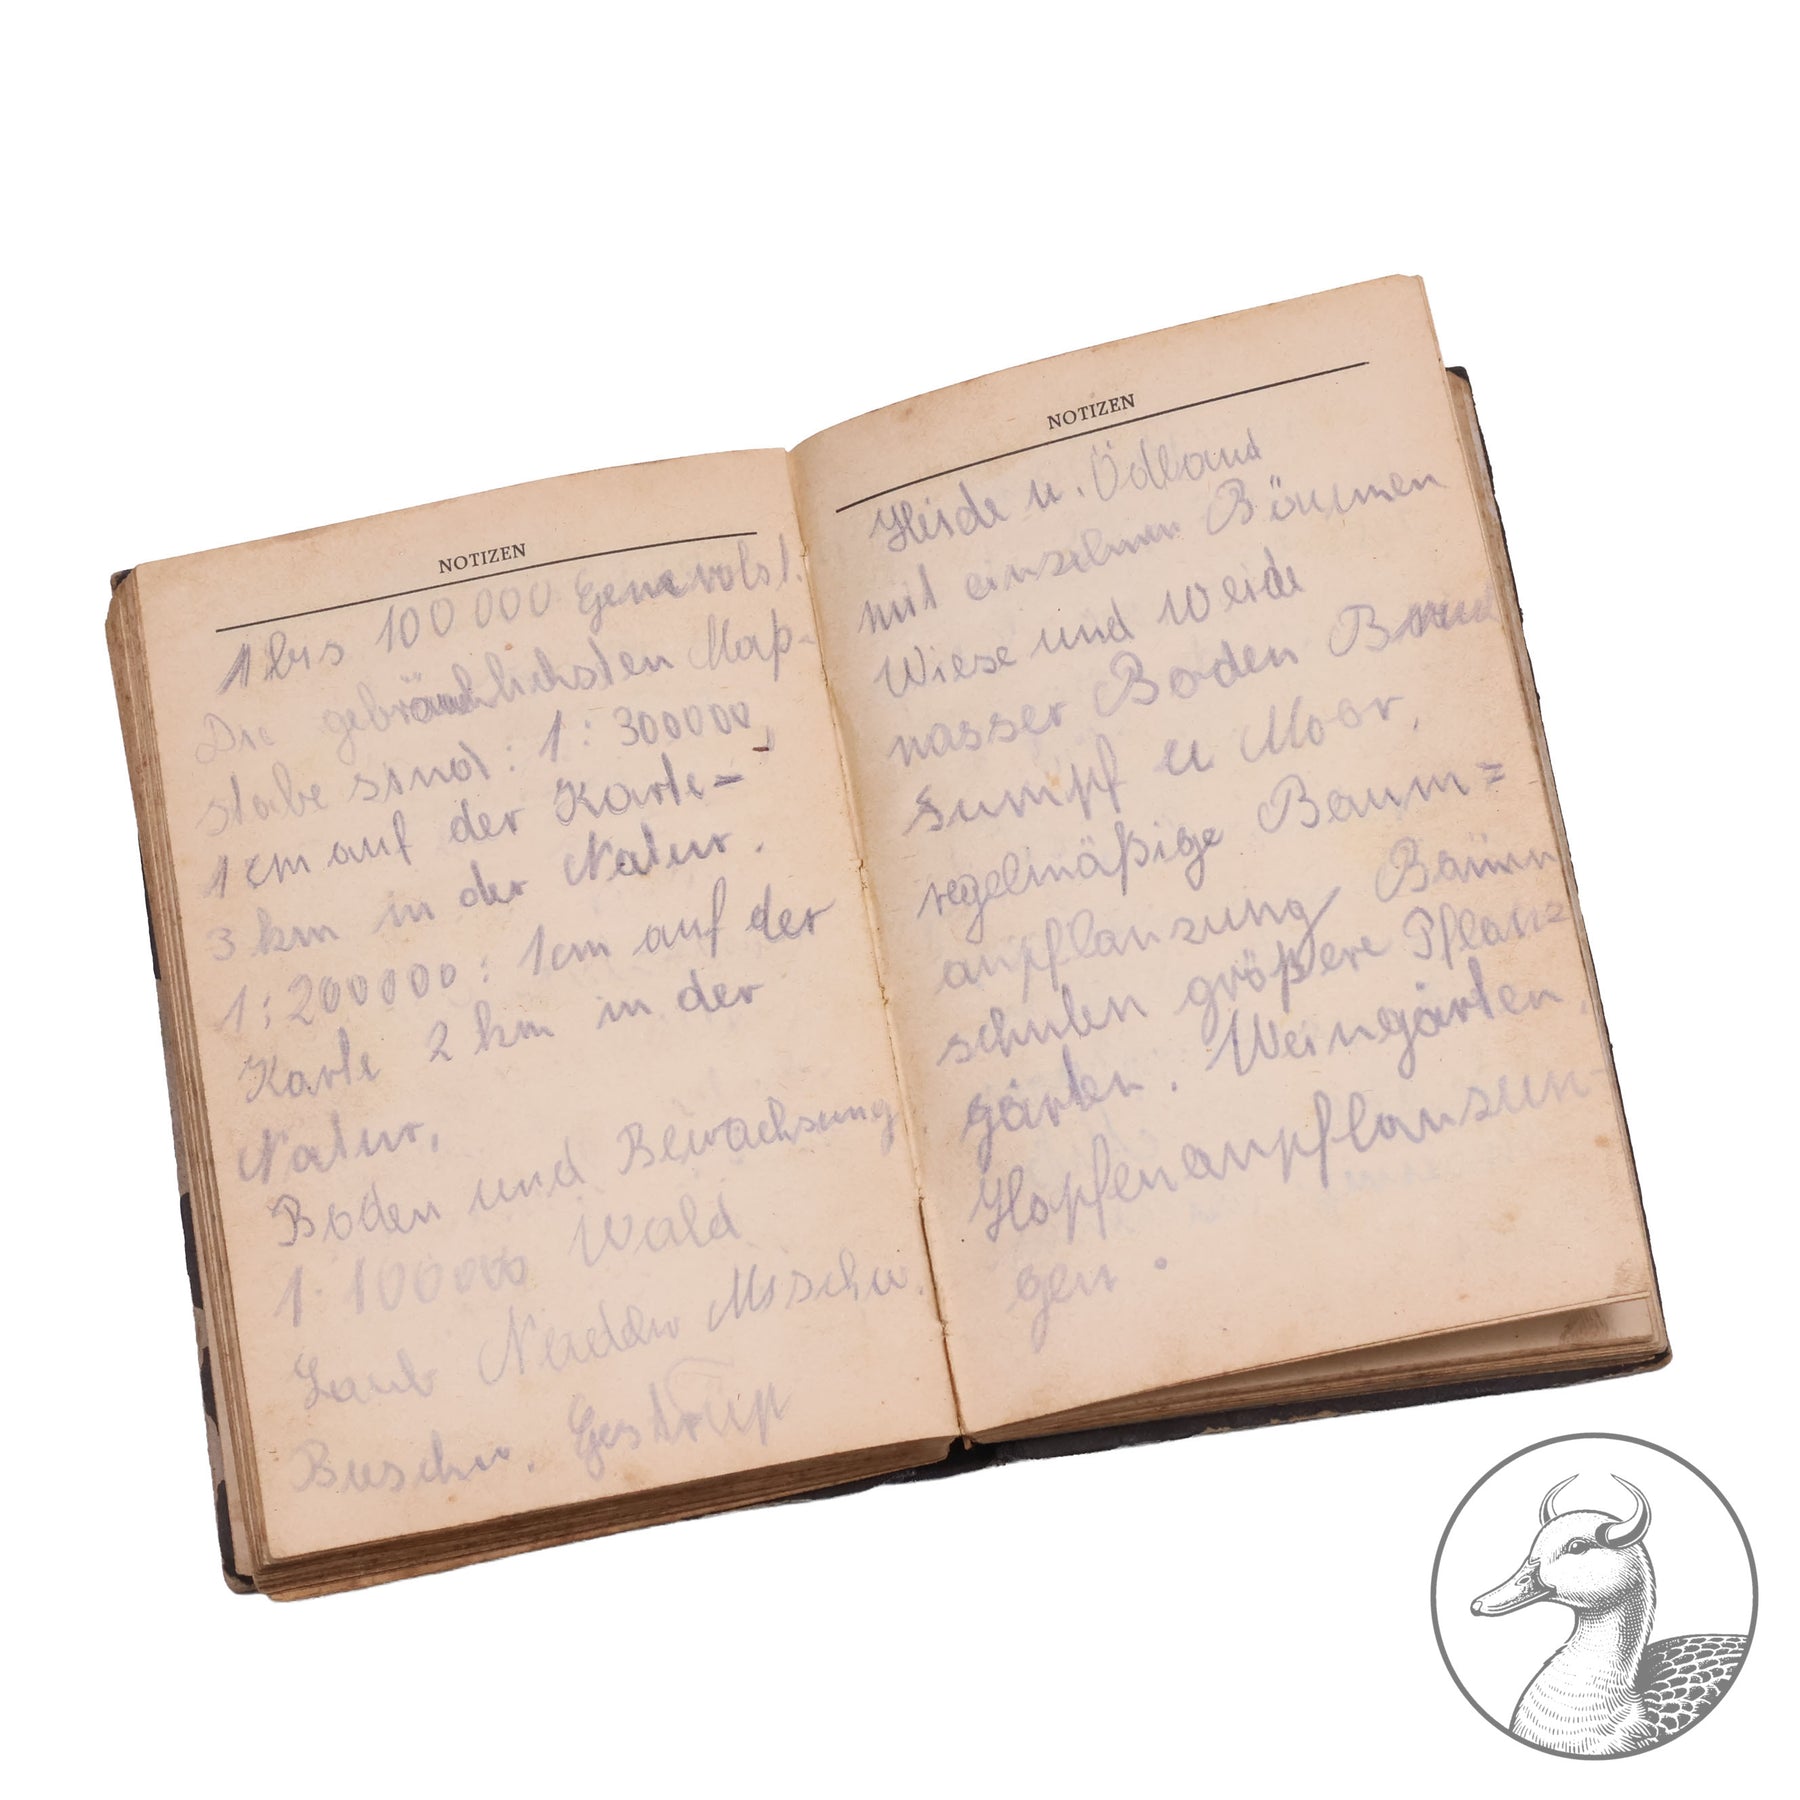 NOTIZEN
1 bis 100 000 Generalst.
Die gebräuchlichsten Maß-
stabe sind: 1: 300000,
1 cm auf der Karte =
3 km in der Natur.
1:200000: 1cm auf der
Karte 2 km in der
Natur,
Boden und Bewachsung
1:100000 Wald
Laub Mischw.
Buschw. Gestrüp
NOTIZEN
Heide u. Ödland
mit einzelnen Bäumen
Wiese und Weide
nasser Boden
Sumpf u Moor,
regelmäßige Baum=
anpflanzung Baum
schulen größere Pflanz
gärten. Weingärten,
Hopfenanpflanzun-
gen.